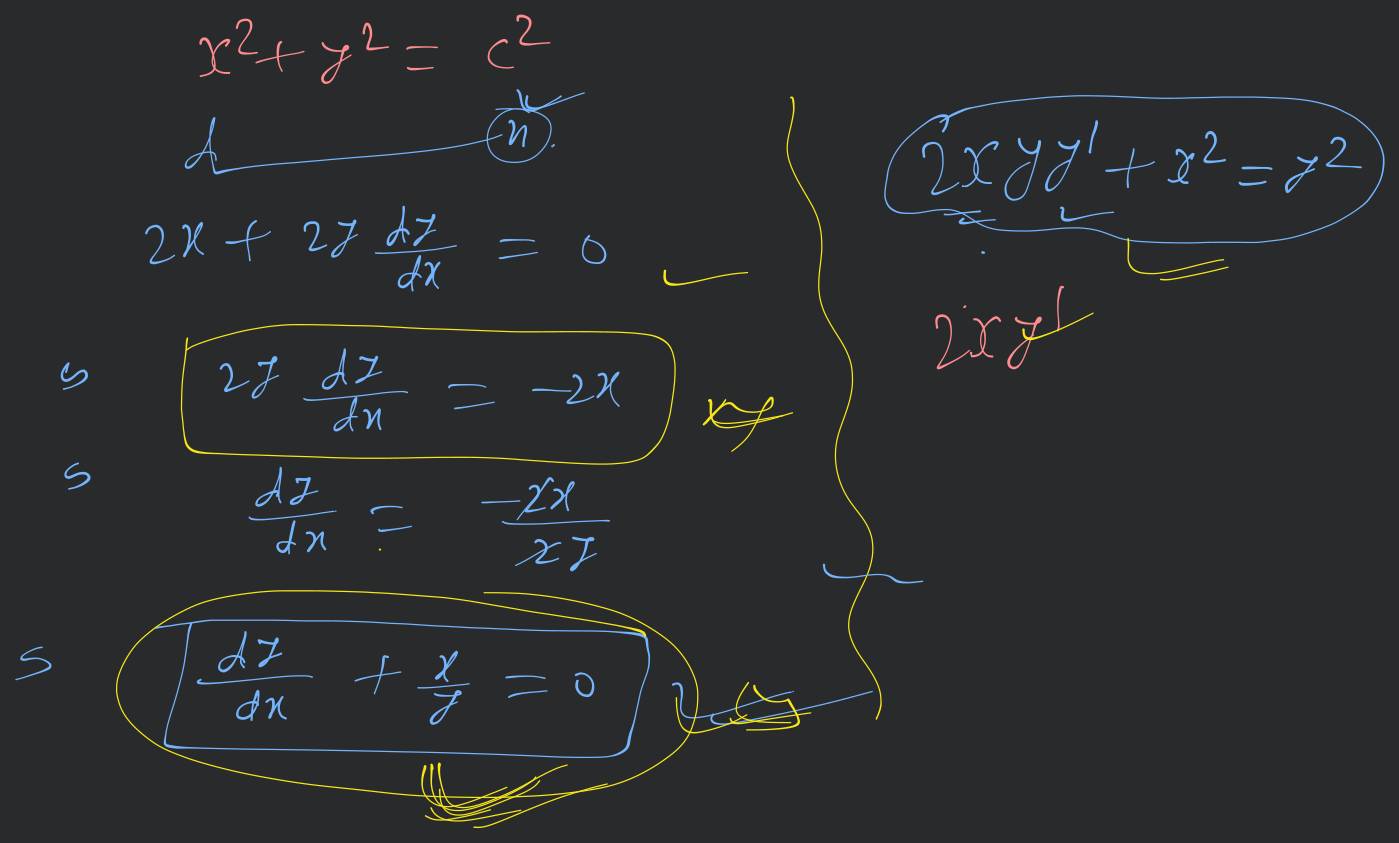 x² + y² = c²
d n.
2x + 2y dy/dx = 0
2y dy/dx = -2x
dy/dx = -2x/2y
dy/dx + x/y = 0
2xyy' + x² = y²
2xy'